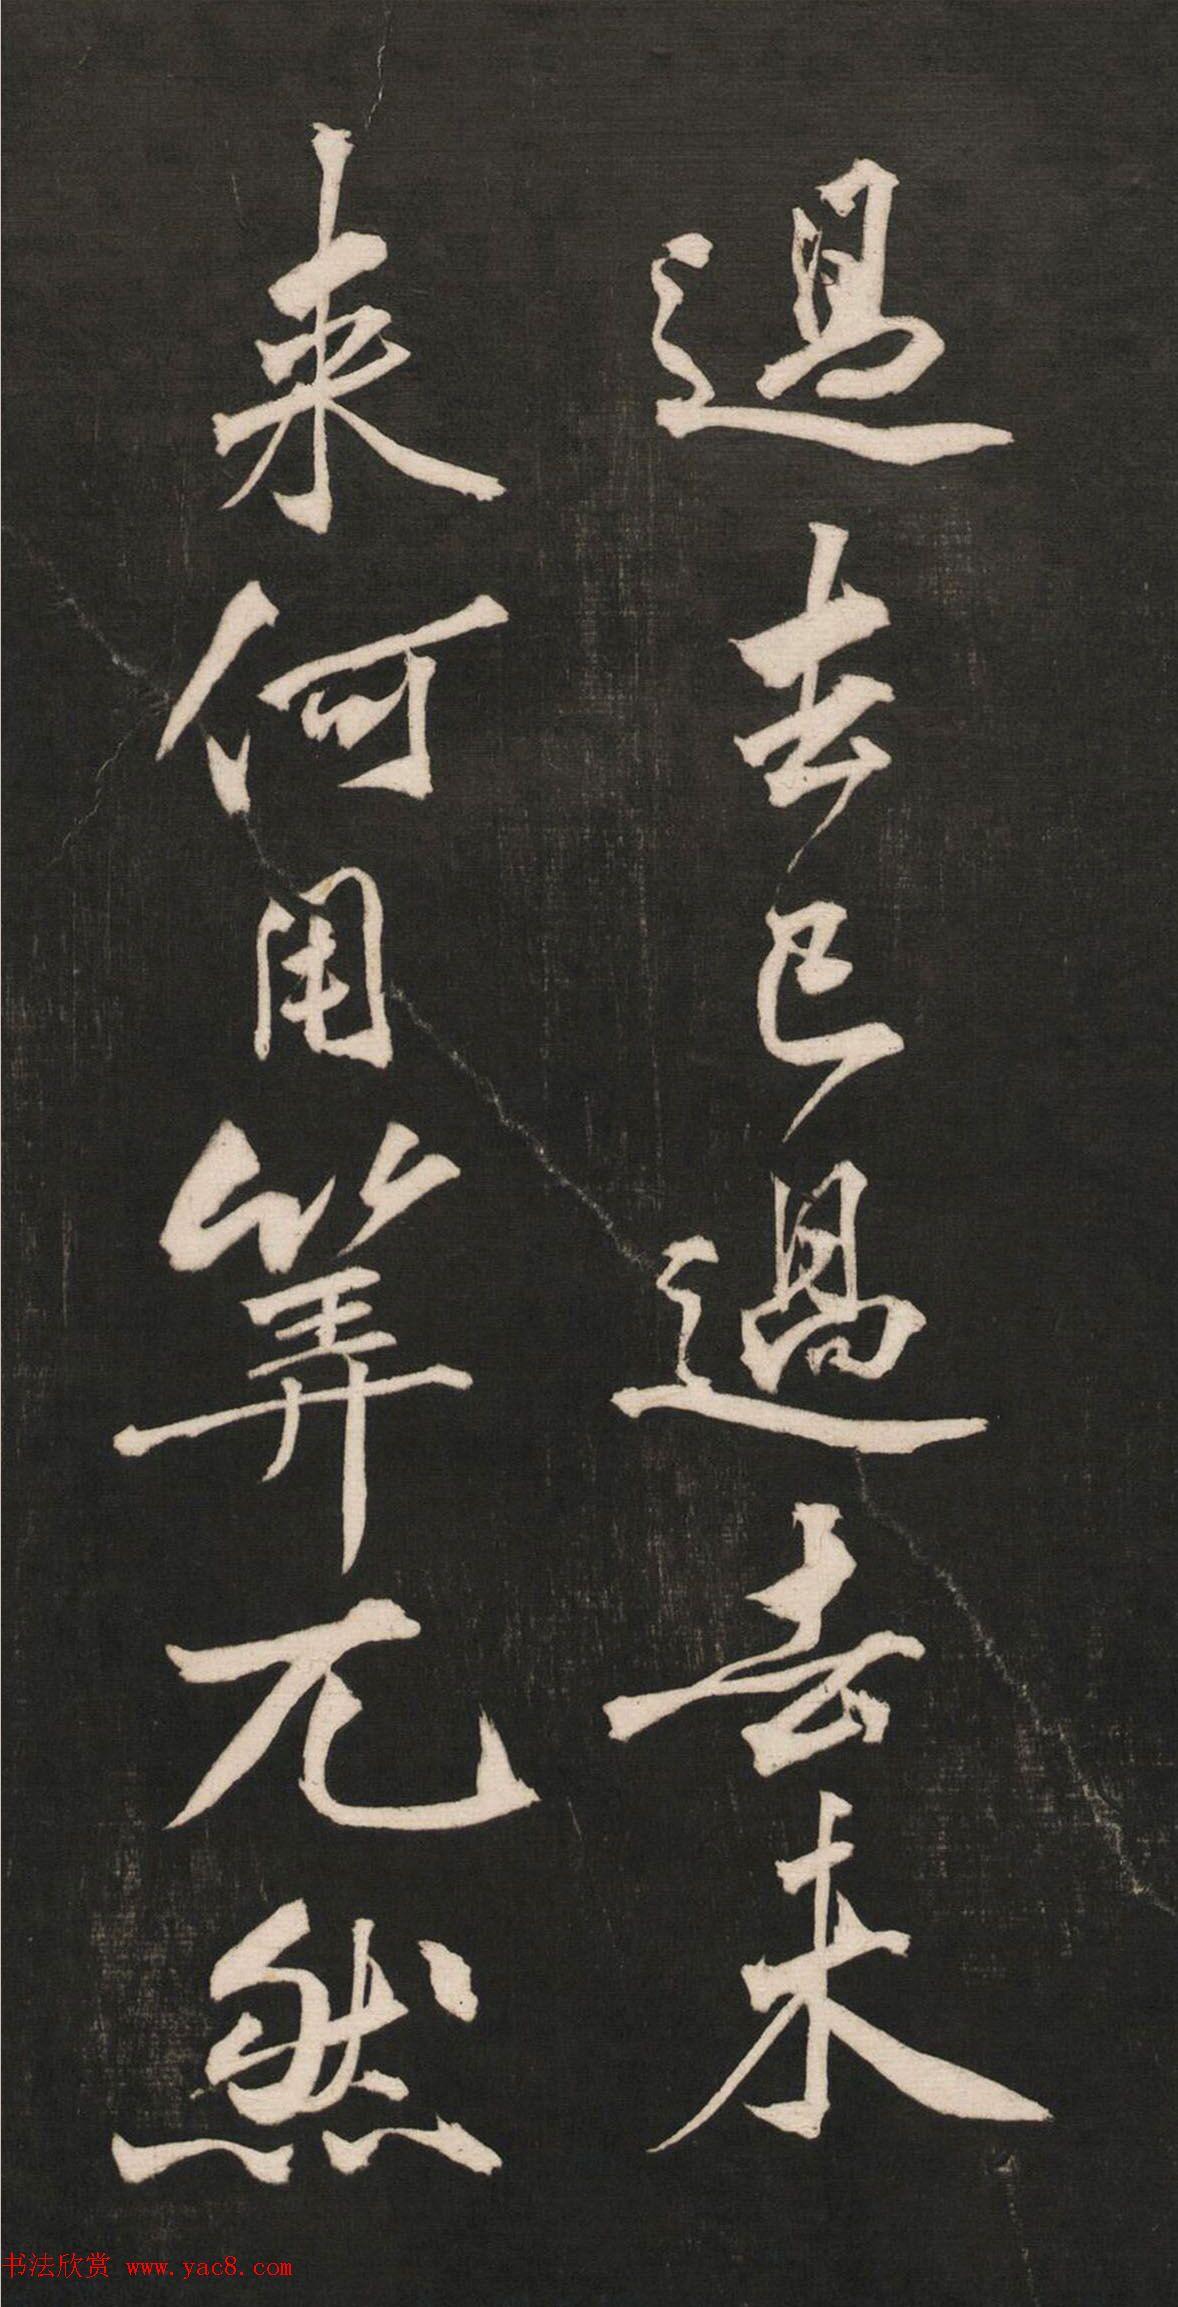 過去已過去未
来何用筭兀然
书法欣赏 www.yac8.com